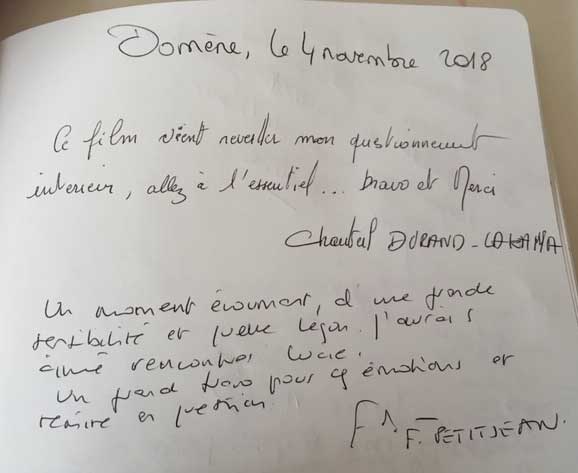 Domène, le 4 novembre 2018
Ce film vient reveiller mon questionnement
interieur, allez à l'essentiel... bravo et Merci
Chantal DURAND-
Un moment émouvant, d'une grande
sensibilité et quelle leçon. J'aurais
aimé rencontrer Lucie.
Un grand bravo pour ces émotions et
remise en question
F. PETITJEAN.